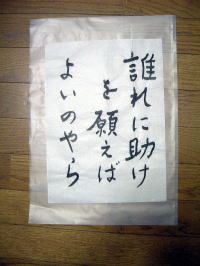 誰れに助け
を願えば
よいのやら